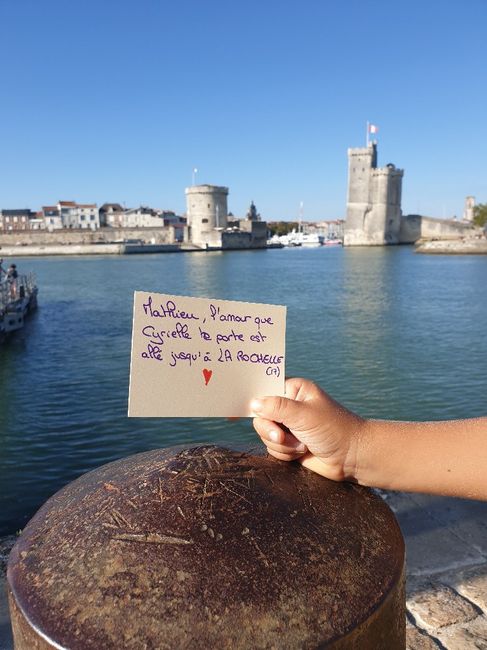 Mathieu, l'amour que
Cyrielle te porte est
allé jusqu'à LA ROCHELLE
(17)